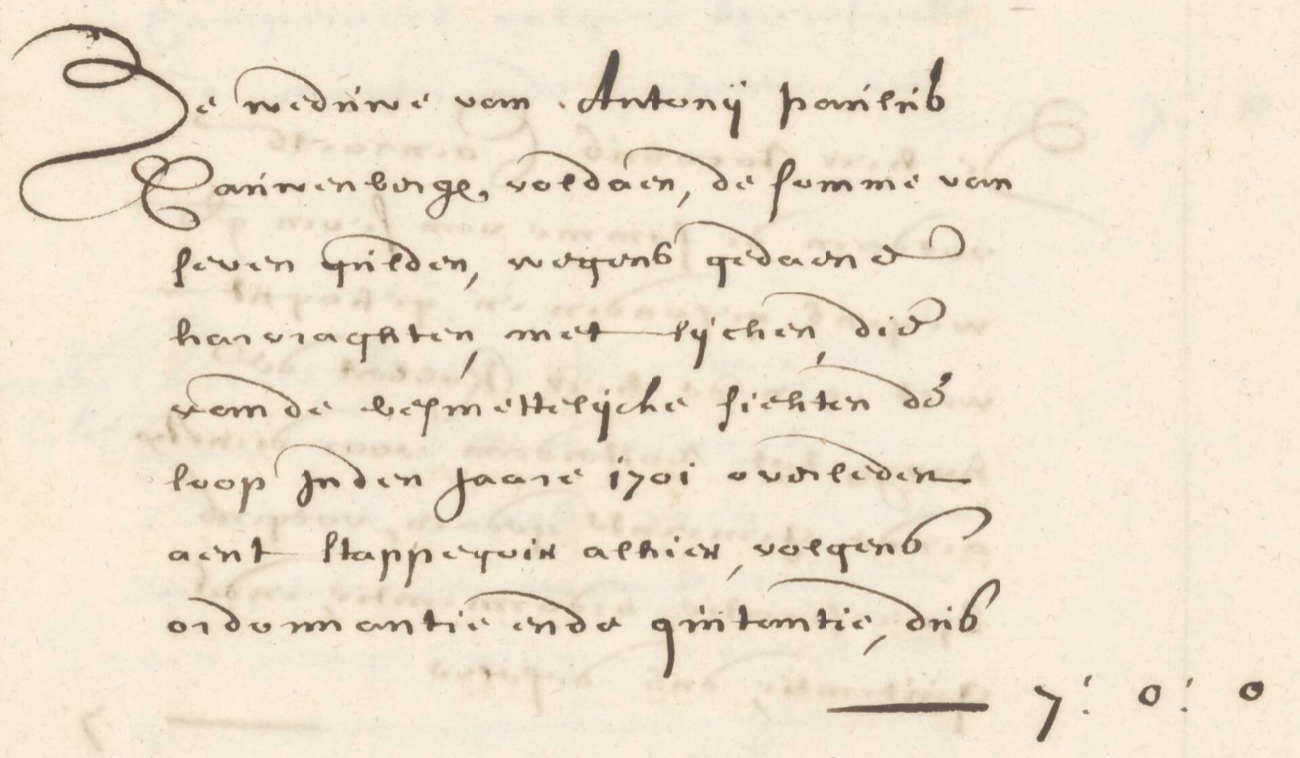 De weduwe van Antonij paulus
Cauwenberge, voldaen, de somme van
seven gulden, wegens gedaene
harvraghten, met lijchen, die
vande besmettelijcke siekten de
loop Inden Jaare 1701 overleden
aent alhier, volgens
ordonnantie ende quitantie, dus
7: 0: 0